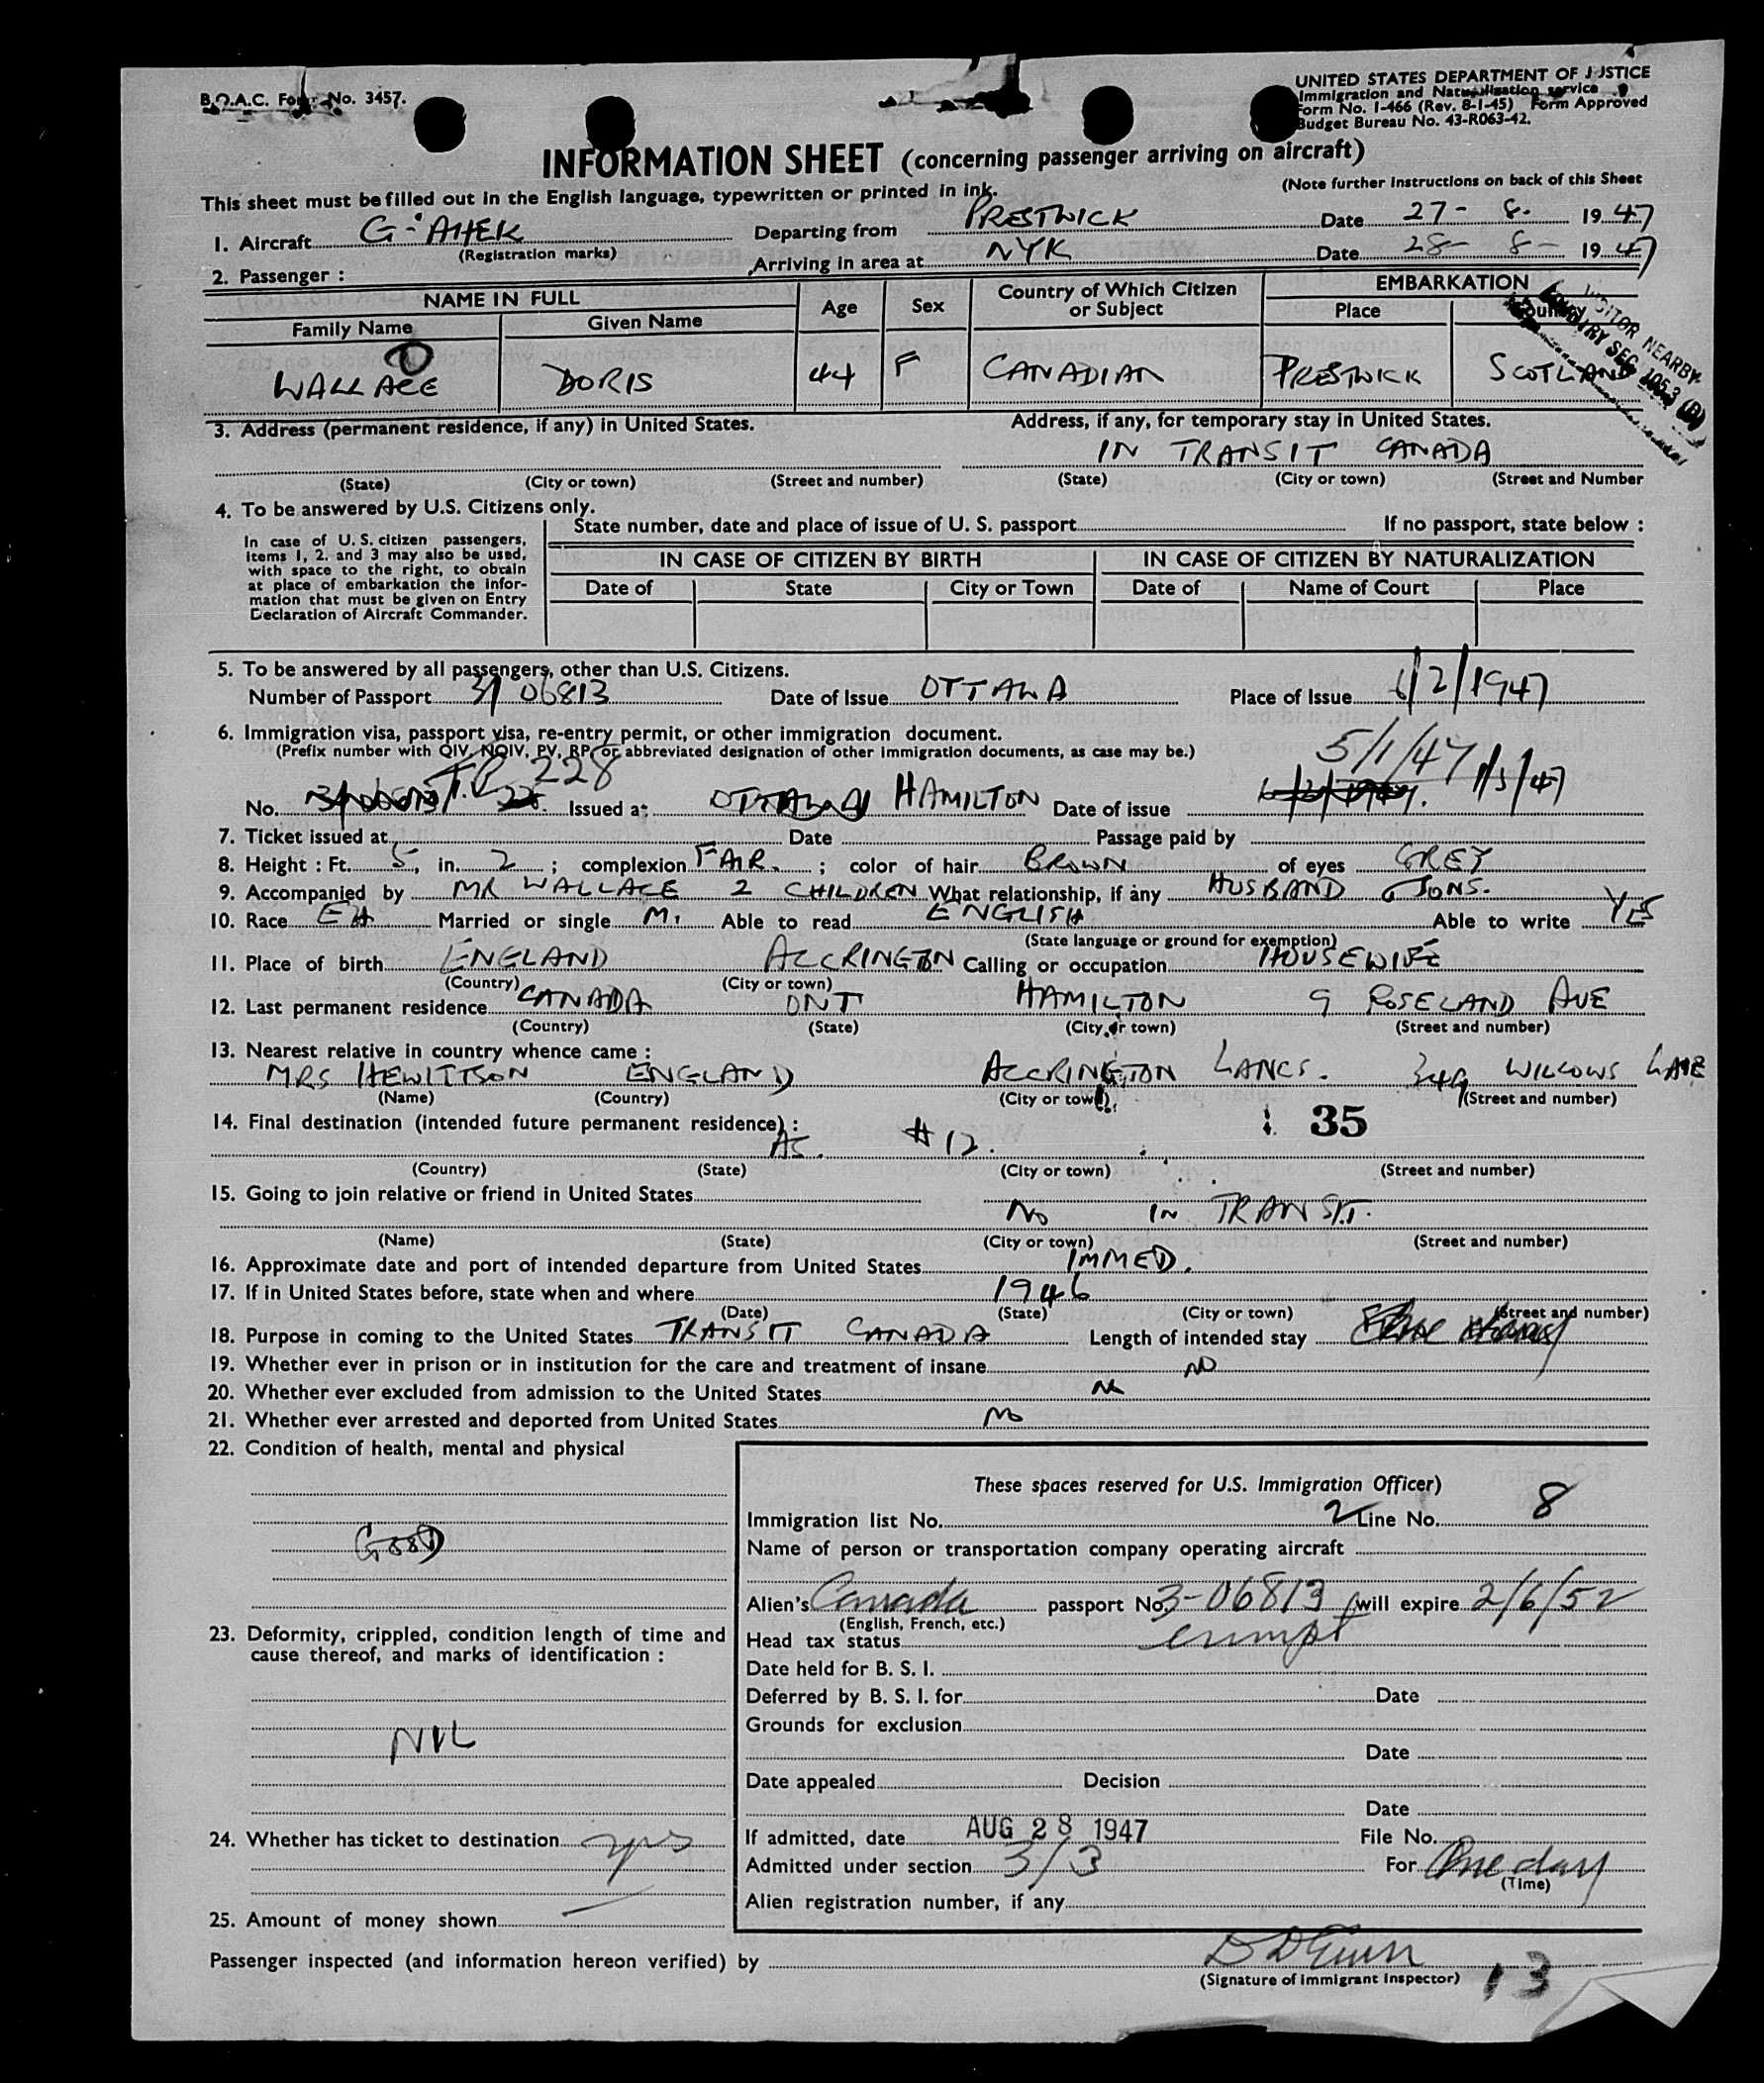 B.O.A.C. Form No. 3457.
UNITED STATES DEPARTMENT OF JUSTICE
Immigration and Naturalisation service
Form No. I-466 (Rev. 8-1-45) Form Approved
Budget Bureau No. 43-R063-42.
INFORMATION SHEET (concerning passenger arriving on aircraft)
This sheet must be filled out in the English language, typewritten or printed in ink.
(Note further Instructions on back of this Sheet
1. Aircraft G-AHEK Departing from PRESTWICK Date 27-8. 1947
(Registration marks)
Arriving in area at NYK Date 28-8-1947
2. Passenger :
NAME IN FULL Age Sex Country of Which Citizen or Subject EMBARKATION
Family Name Given Name Place Country
WALLACE DORIS 44 F CANADIAN PRESTWICK SCOTLAND
VISITOR NEARBY
COUNTRY SEC.
3. Address (permanent residence, if any) in United States. Address, if any, for temporary stay in United States.
IN TRANSIT CANADA
(State) (City or town) (Street and number) (State) (City or town) (Street and Number
4. To be answered by U.S. Citizens only.
State number, date and place of issue of U. S. passport If no passport, state below :
In case of U.S. citizen passengers,
items 1, 2. and 3 may also be used,
with space to the right, to obtain
at place of embarkation the infor-
mation that must be given on Entry
Declaration of Aircraft Commander.
IN CASE OF CITIZEN BY BIRTH IN CASE OF CITIZEN BY NATURALIZATION
Date of State City or Town Date of Name of Court Place
5. To be answered by all passengers, other than U.S. Citizens.
Number of Passport 3/06813 Date of Issue OTTAWA Place of Issue 6/2/1947
6. Immigration visa, passport visa, re-entry permit, or other immigration document.
(Prefix number with QIV, NQIV, PV, RP, or abbreviated designation of other immigration documents, as case may be.)
228 5/1/47
No. Issued at HAMILTON Date of issue 1/5/47
7. Ticket issued at Date Passage paid by
8. Height : Ft. 5, in. 2 ; complexion FAIR. ; color of hair BROWN of eyes GREY
9. Accompanied by MR WALLACE 2 CHILDREN What relationship, if any HUSBAND SONS.
10. Race Married or single M. Able to read ENGLISH Able to write YES
(State language or ground for exemption)
11. Place of birth ENGLAND ACCRINGTON Calling or occupation HOUSEWIFE
(Country) (City or town)
12. Last permanent residence CANADA ONT HAMILTON 9 ROSELAND AVE
(Country) (State) (City or town) (Street and number)
13. Nearest relative in country whence came :
MRS HEWITTSON ENGLAND ACCRINGTON LANCS. 349 WILLOWS LANE
(Name) (Country) (City or town) (Street and number)
35
14. Final destination (intended future permanent residence) :
AS. #12.
(Country) (State) (City or town) (Street and number)
15. Going to join relative or friend in United States
NO IN TRANSIT.
(Name) (State) (City or town) (Street and number)
16. Approximate date and port of intended departure from United States IMMED.
17. If in United States before, state when and where 1946
(Date) (State) (City or town) (Street and number)
18. Purpose in coming to the United States TRANSIT CANADA Length of intended stay
19. Whether ever in prison or in institution for the care and treatment of insane NO
20. Whether ever excluded from admission to the United States No
21. Whether ever arrested and deported from United States No
22. Condition of health, mental and physical
GOOD
These spaces reserved for U.S. Immigration Officer)
Immigration list No. 2 Line No. 8
Name of person or transportation company operating aircraft
Alien's Canada passport No. 3-06813 will expire 2/6/52
(English, French, etc.)
Head tax status exempt
Date held for B. S. I.
Deferred by B. S. I. for Date
Grounds for exclusion
Date
Date appealed Decision
Date
If admitted, date AUG 28 1947 File No.
Admitted under section 3/3 For One day
(Time)
Alien registration number, if any
23. Deformity, crippled, condition length of time and
cause thereof, and marks of identification :
NIL
24. Whether has ticket to destination yes
25. Amount of money shown
Passenger inspected (and information hereon verified) by
(Signature of Immigrant Inspector)
13